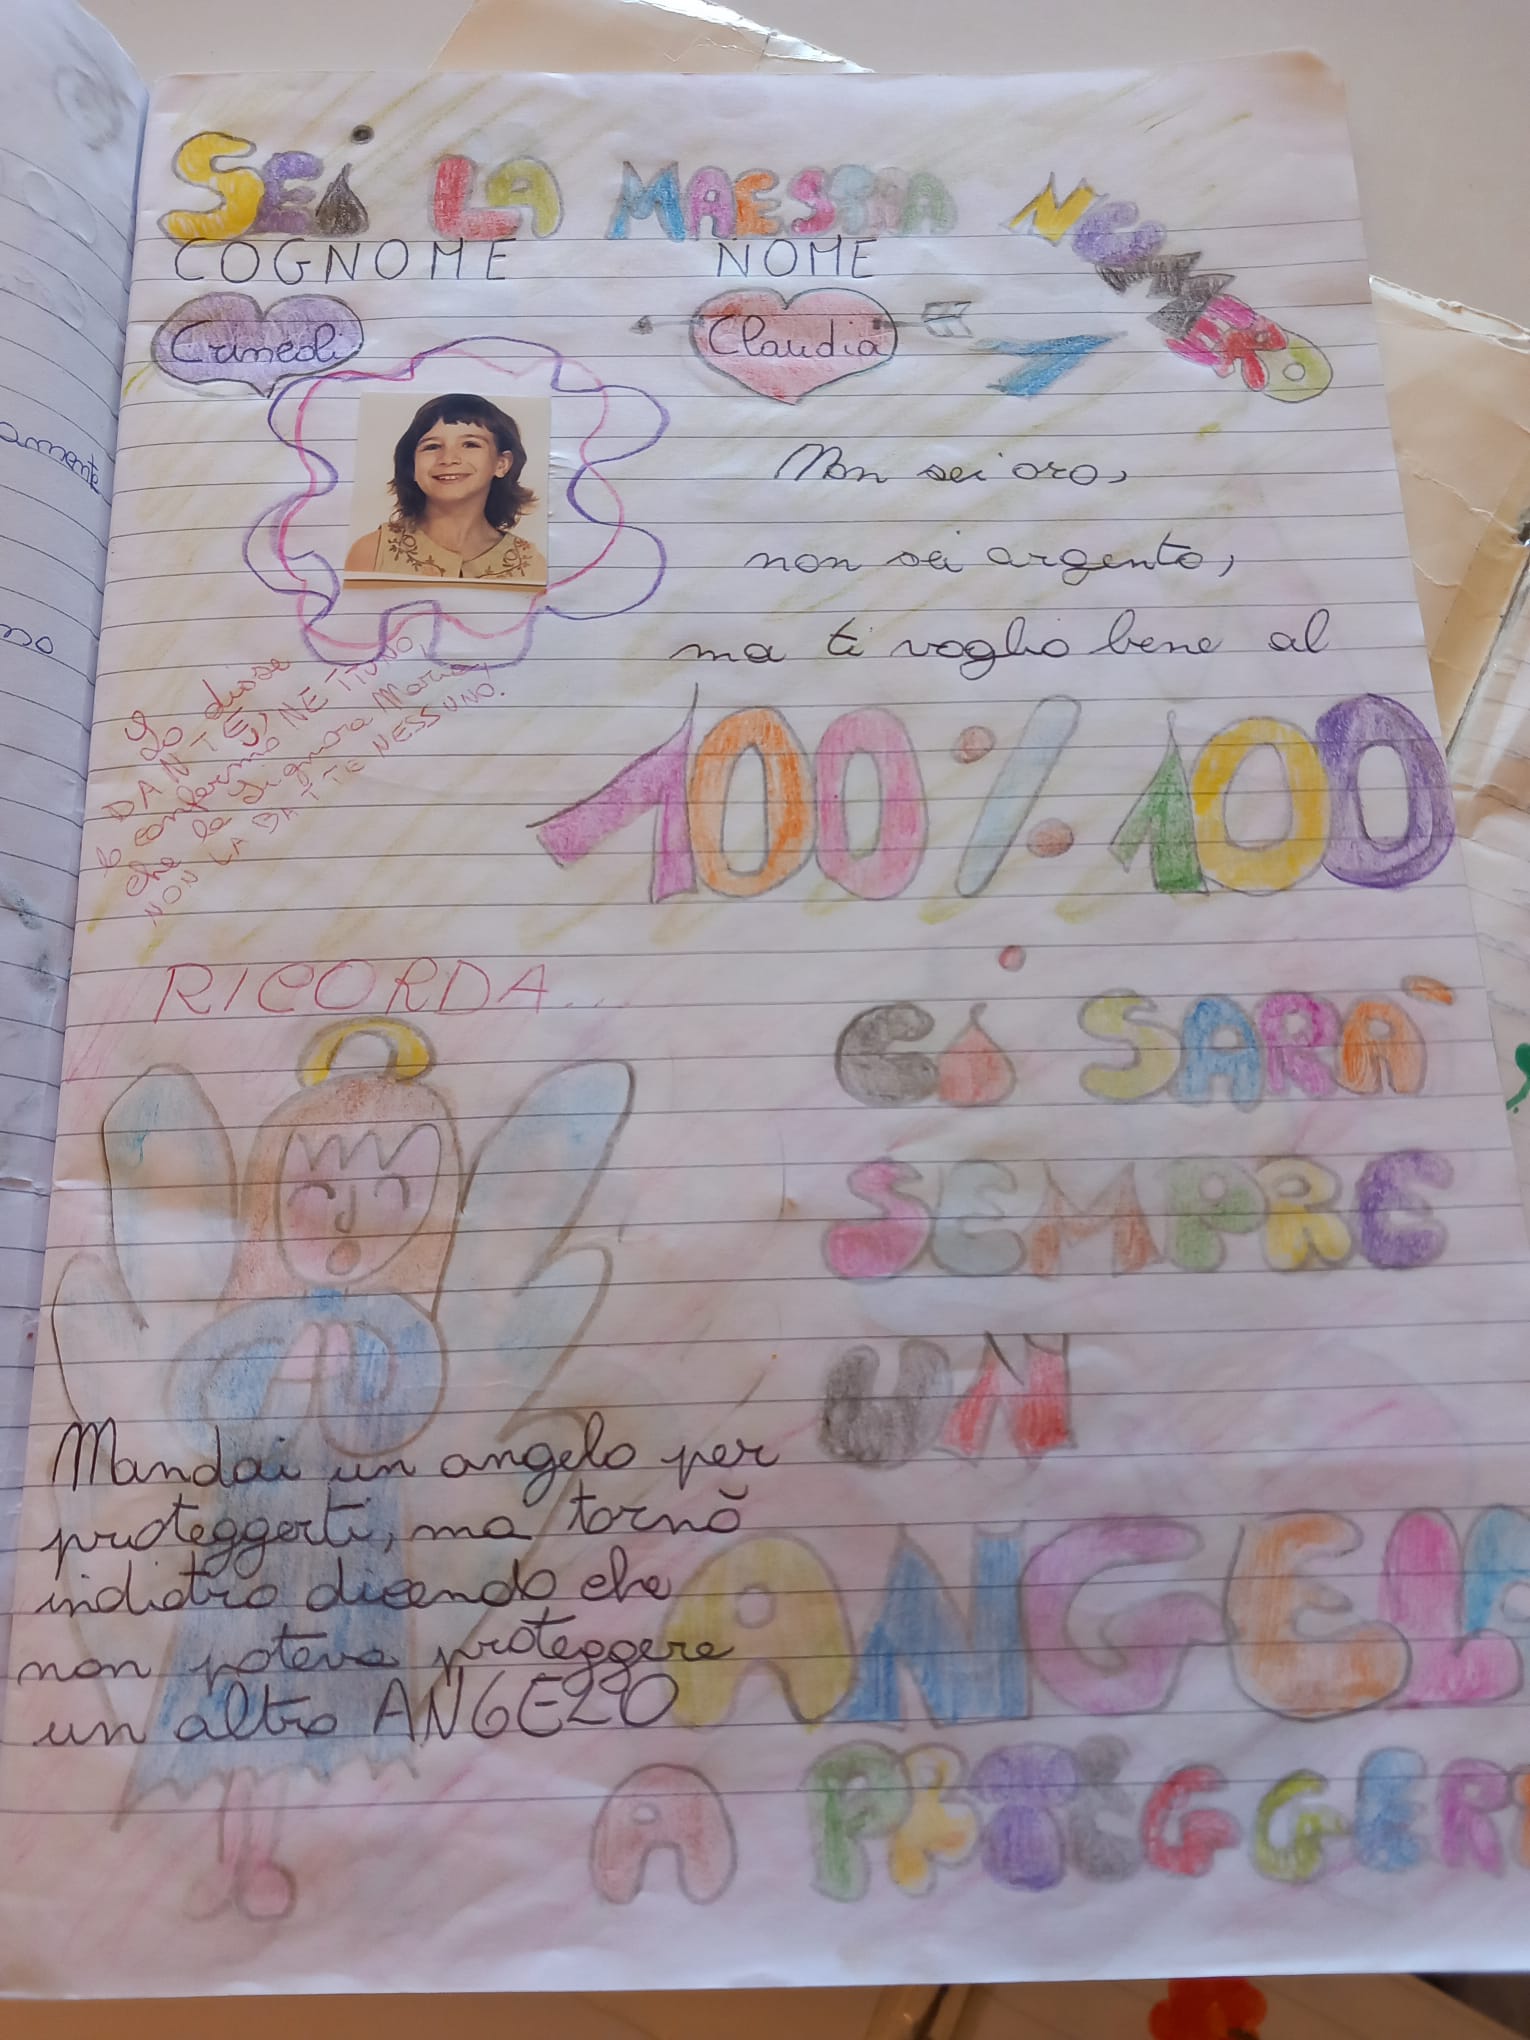 SEI LA MAESTRA NUMERO
1
COGNOME NOME
Claudia
Non sei oro,
non sei argento,
ma ti voglio bene al
100% 100
Lo disse
DANTE,
lo confermò NETTUNO,
che la signora Maria,
NON LA BATTE NESSUNO.
RICORDA...
CI SARÀ
SEMPRE
UN
ANGELO
Mandai un angelo per
proteggerti, ma tornò
indietro dicendo che
non poteva proteggere
un altro ANGELO
A
amente